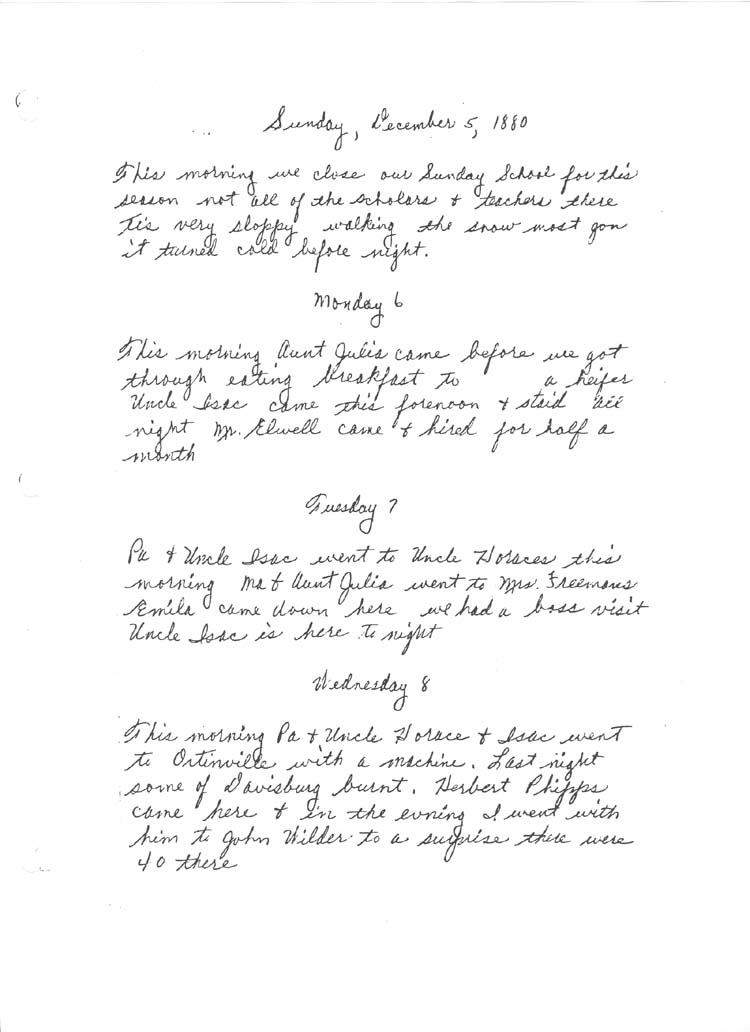 Sunday, December 5, 1880
This morning we close our Sunday School for this
season not all of the scholars + teachers there
Tis very sloppy walking the snow most gon
it turned cold before night.
Monday 6
This morning Aunt Julia came before we got
through eating breakfast to a heifer
Uncle Isac came this forenoon + staid all
night Mr. Elwell came + hired for half a
month
Tuesday 7
Pa + Uncle Isac went to Uncle Horaces this
morning Ma + Aunt Julia went to Mrs. Freemans
Emila came down here we had a boss visit
Uncle Isac is here to night
Wednesday 8
This morning Pa + Uncle Horace + Isac went
to Ortinville with a machine. Last night
some of Davisburg burnt. Herbert Phipps
came here + in the evning I went with
him to John Wilder to a surprise there were
40 there